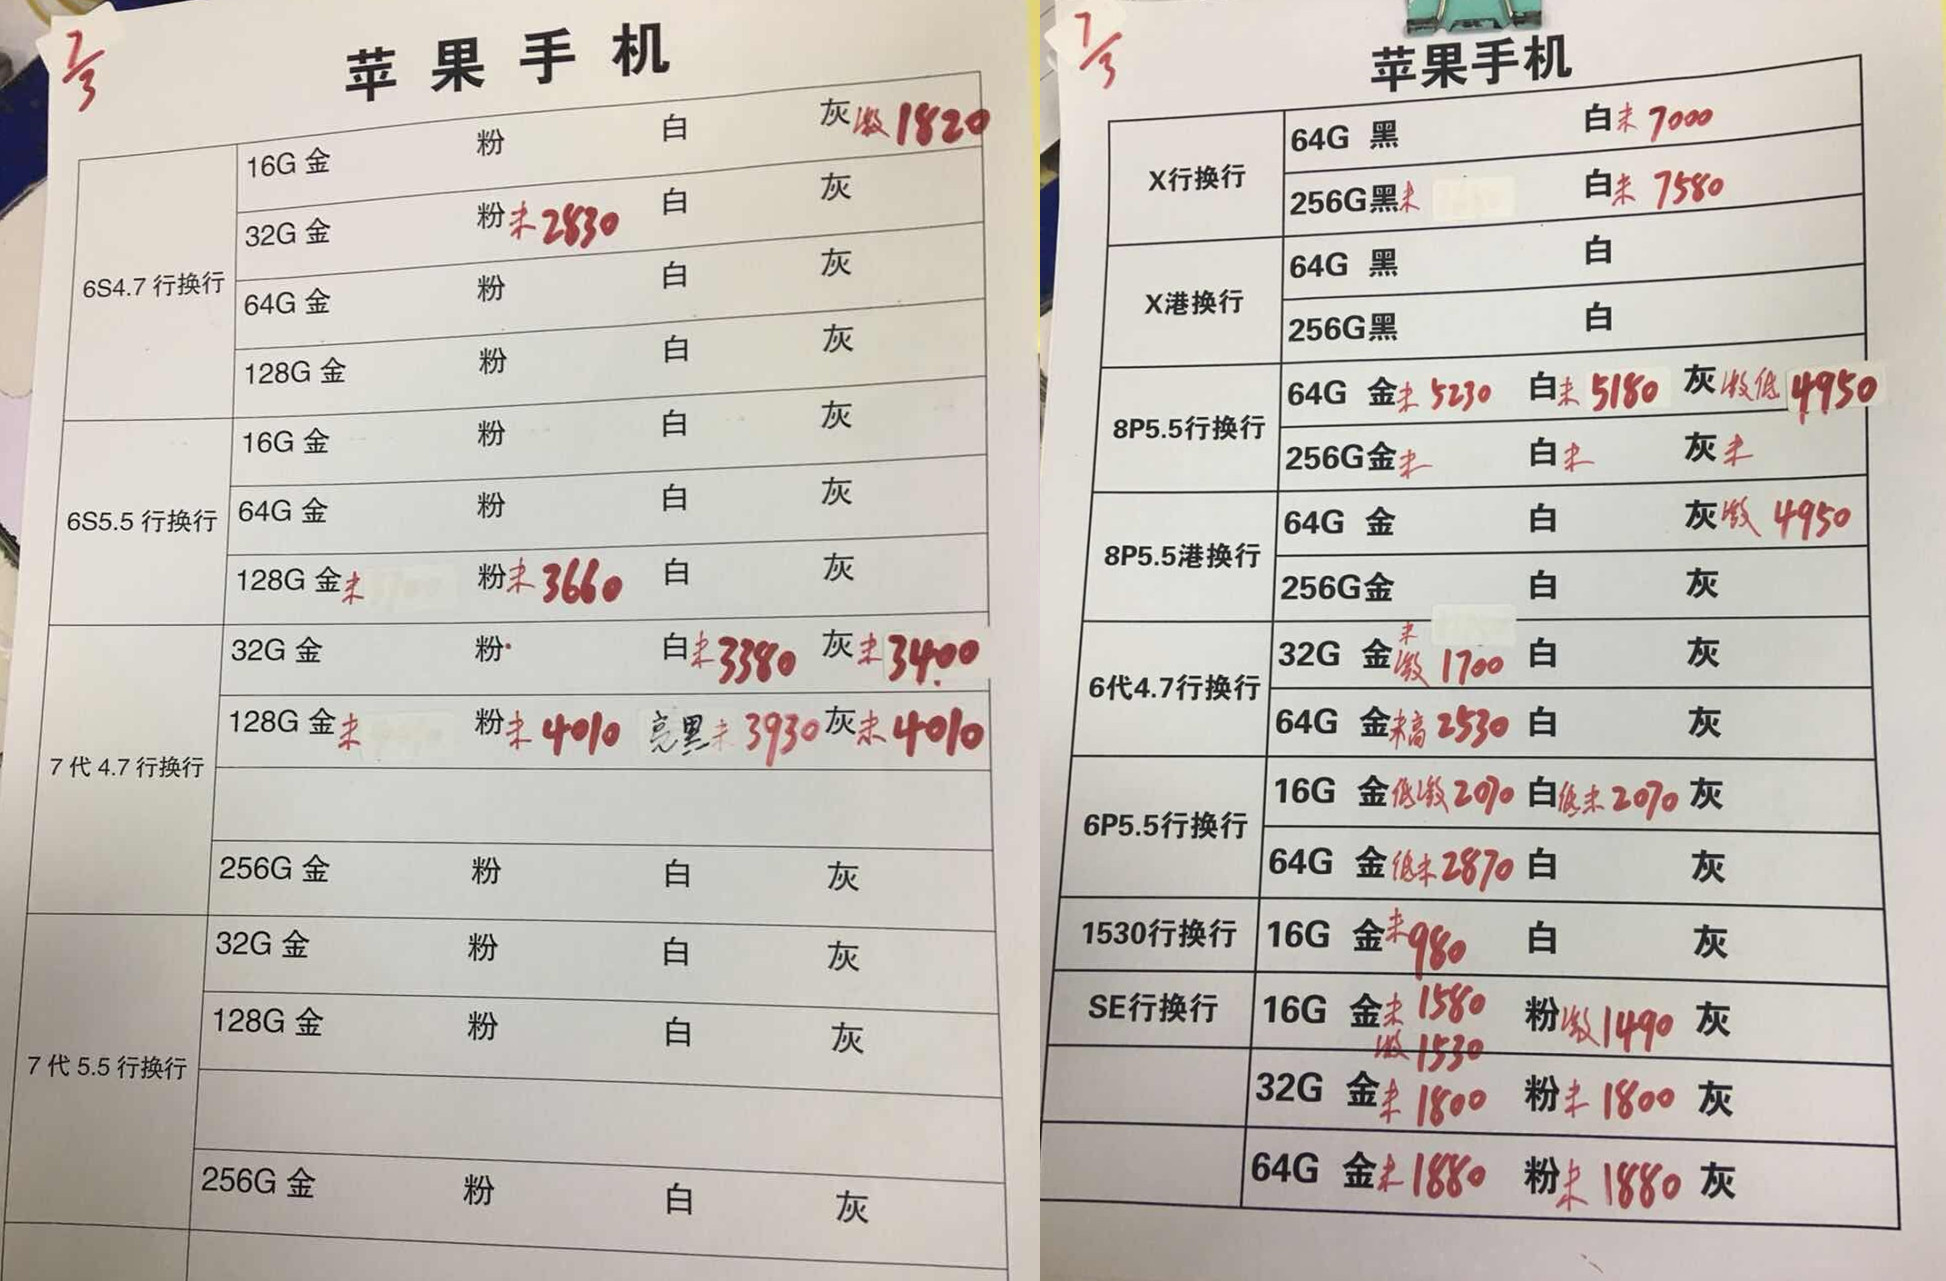 7/3
苹果手机
6S4.7 行换行
16G 金 粉 白 灰 激 1820
32G 金 粉 未 2830 白 灰
64G 金 粉 白 灰
128G 金 粉 白 灰
6S5.5 行换行
16G 金 粉 白 灰
64G 金 粉 白 灰
128G 金 未 粉 未 3660 白 灰
7 代 4.7 行换行
32G 金 粉 白 未 3380 灰 未 3400
128G 金 未 粉 未 4010 亮黑 未 3930 灰 未 4010
256G 金 粉 白 灰
7 代 5.5 行换行
32G 金 粉 白 灰
128G 金 粉 白 灰
256G 金 粉 白 灰
7/3
苹果手机
X行换行
64G 黑 白 未 7000
256G黑 未 白 未 7580
X港换行
64G 黑 白
256G黑 白
8P5.5行换行
64G 金 未 5230 白 未 5180 灰 激低 4950
256G金 未 白 未 灰 未
8P5.5港换行
64G 金 白 灰 激 4950
256G金 白 灰
6代4.7行换行
未
32G 金 激 1700 白 灰
64G 金 未高 2530 白 灰
6P5.5行换行
16G 金 低激 2070 白 低未 2070 灰
64G 金 低未 2870 白 灰
1530行换行
16G 金 未 980 白 灰
SE行换行
16G 金 未 1580 粉 激 1490 灰
激 1530
32G 金 未 1800 粉 未 1800 灰
64G 金 未 1880 粉 未 1880 灰